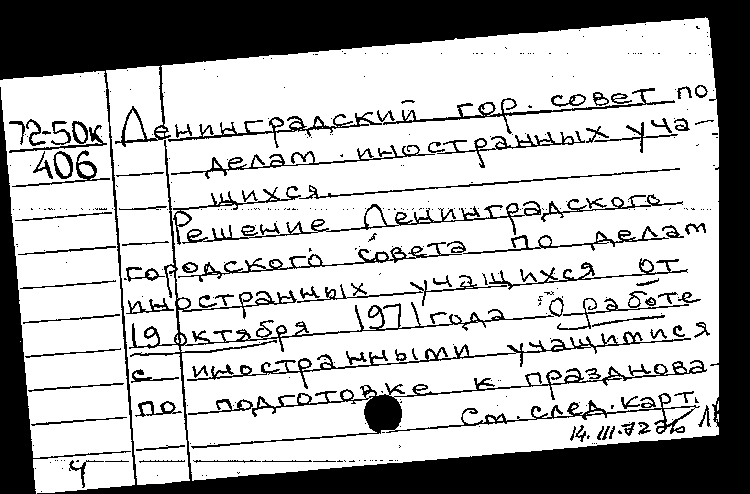 72-50к Ленинградский гор. совет по
406 делам иностранных уча-
щихся.
Решение Ленинградского
городского совета по делам
иностранных учащихся от
19 октября 1971 года О работе
с иностранными учащимися
по подготовке к празднова-
См. след. карт.
14.III.72
Ч